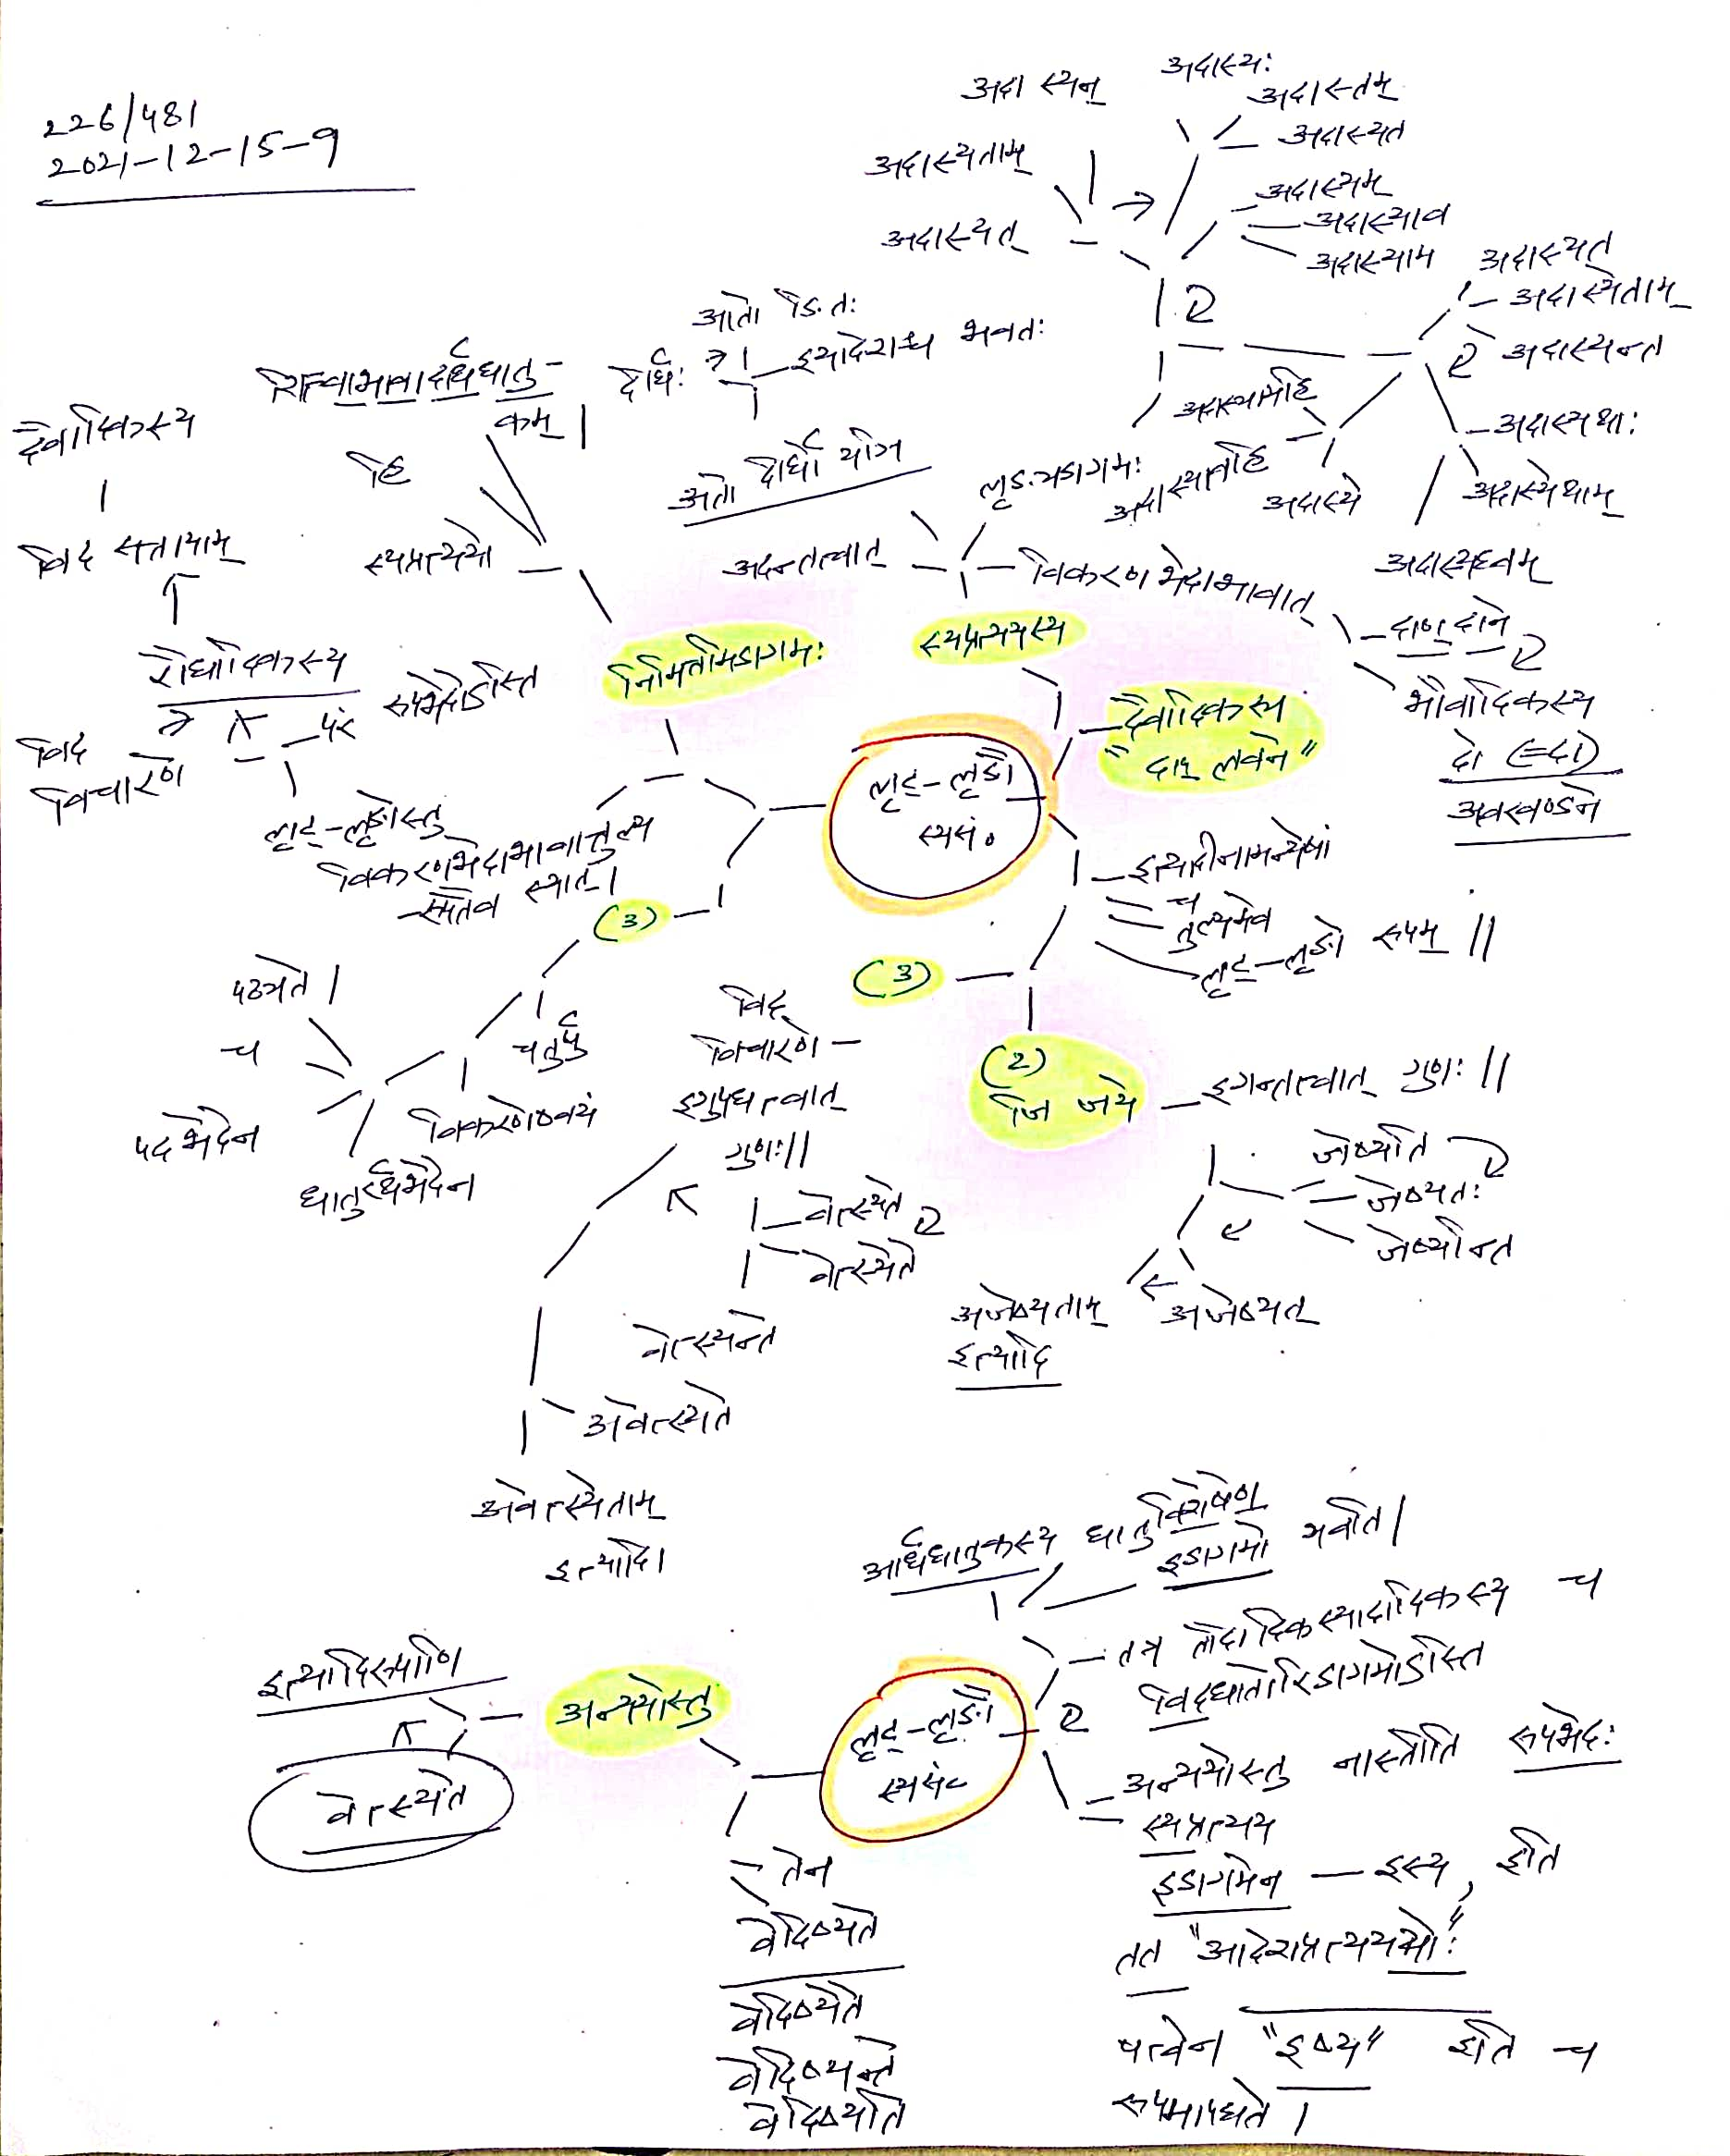 226/481
2021-12-15-9
अदास्यन्
अदास्यः
अदास्तम्
अदास्यत
अदास्यताम्
अदास्यम
अदास्याव
अदास्याम
अदास्यत्
अदास्यत
अदास्येताम्
अदास्यन्त
अदास्यथाः
अदास्येथाम्
अदास्यध्वम्
अदास्ये
अदास्यावहि
अदास्यामहि
आतो ङितः
इयादेशश्च भवतः
दीर्घः
शित्वाभावादर्धधातु-
कम्
हि
स्यप्रत्ययो
दैवादिकस्य
विद सत्तायाम्
रौधादिकस्य
रूपभेदोऽस्ति
विद
विचारणे
परं
लृट्-लृङोस्तु
विकरणभेदाभावात्तुल्य
स्यात्।
अतो दीर्घो यञि
लृङ्यडागमः
अदन्तत्वात्
विकरण भेदाभावात्
दाण् दाने
भौवादिकस्य
दो (=दा)
अवखण्डने
निमित्तमिडागमः
स्यप्रत्ययस्य
दैवादिकस्य
"दाप् लवने"
लृट्-लृङौ
स्यसं०
इत्यादीनामन्येषां
च
तुल्यमेव
लृट्-लृङो रूपम् ||
(3)
(3)
पठ्यते।
च
पदभेदेन
धात्वर्थभेदेन
विकरणेष्वयं
चतुर्षु
विद्
विचारणे -
इगुपधत्वात्
गुणः||
वेत्स्यते
वेत्स्येते
वेत्स्यन्ते
अवेत्स्यत
अवेत्स्येताम्
इत्यादि।
(2)
जि जये
इगन्तत्वात् गुणः ||
जेष्यति
जेष्यतः
जेष्यन्ति
अजेष्यत्
अजेष्यताम्
इत्यादि
आर्धधातुकस्य धातुविशेषेण
इडागमो भवति।
तत्र तौदादिकस्यादादिकस्य च
विद्धातोरिडागमोऽस्ति
लृट्-लृङौ
स्यसं०
अन्ययोस्तु नास्तीति रूपभेदः
स्यप्रत्यय
इडागमेन - इस्य, इति
तत "आदेशप्रत्यययोः"
षत्वेन "इष्य" इति च
रूपमापद्यते।
अन्ययोस्तु
इत्यादिरूपाणि
वेत्स्यते
तेन
वेदिष्यते
वेदिष्येते
वेदिष्यन्ते
वेदिष्यति